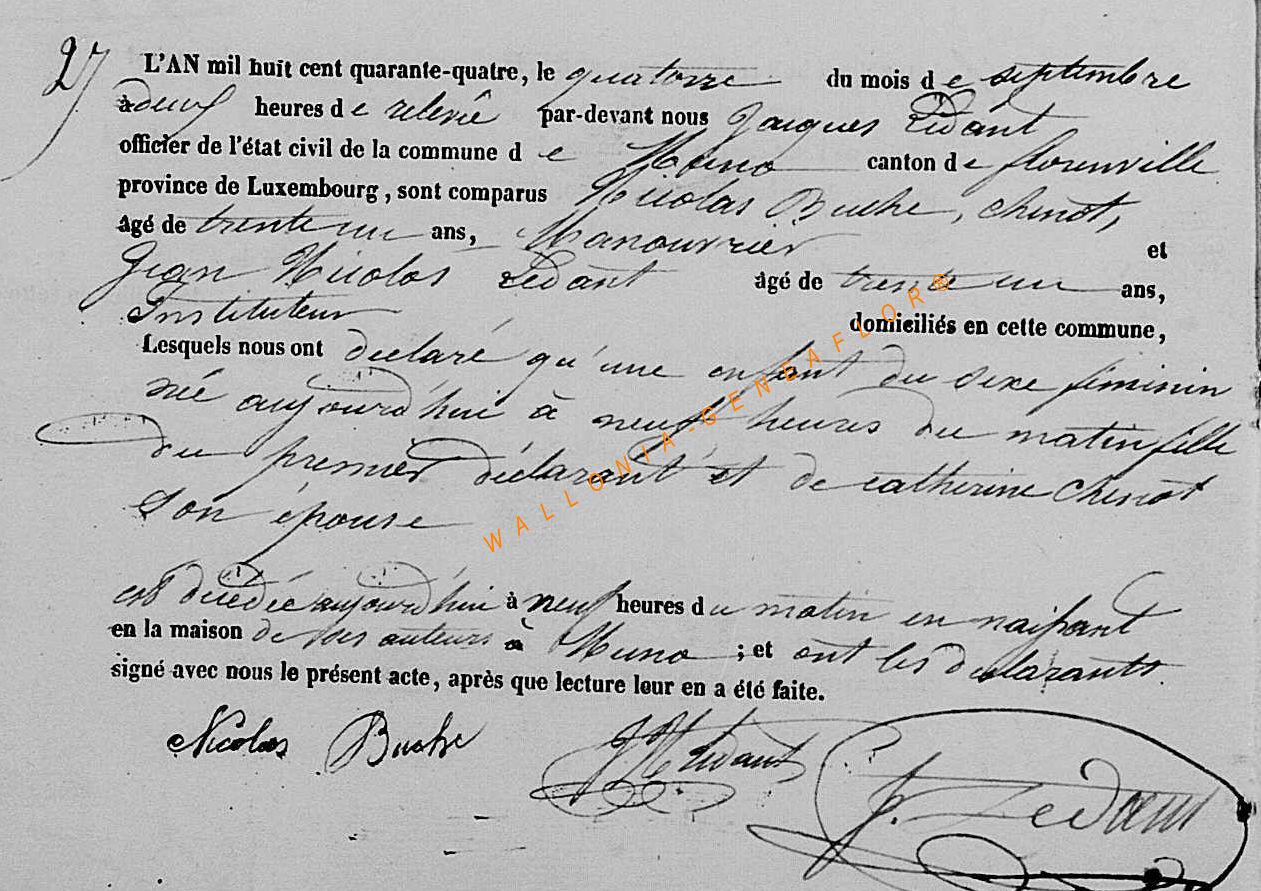 27
L'AN mil huit cent quarante-quatre, le quatorze du mois de septembre
à deux heures de relevée par-devant nous Jacques Lédant
officier de l'état civil de la commune de Muno canton de florenville
province de Luxembourg, sont comparus Nicolas Buche, chenot,
âgé de trente un ans, Manouvrier et
Jean Nicolas Lédant âgé de trente un ans,
Instituteur domiciliés en cette commune,
Lesquels nous ont déclaré qu'une enfant du sexe féminin
née aujourd'hui à neuf heures du matin fille
du premier déclarant et de catherine Chenot
son épouse
est décédée aujourd'hui à neuf heures du matin en naissant
en la maison de ses auteurs à Muno ; et ont les déclarants
signé avec nous le présent acte, après que lecture leur en a été faite.
Nicolas Buche JN Lédant J. Lédant
WALLONIA-GENEAFLOR®